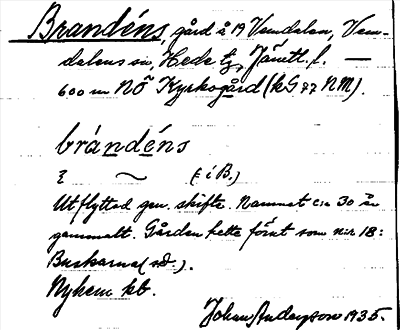 Brandéns, gård å 19 Vemdalen, Vem-
dalens sn, Hede tg, Jämtl. l. —
600 m NÖ Kyrkogård (kG 77 NM).
brándéns
ꝛ ~ (: i B.)
Utflyttad gm. skifte. Namnet c:a 30 år
gammalt. Gården hette förut som n:r 18:
Buskarna (sd.).
Nyhem kb.
Johan Anderson 1935.